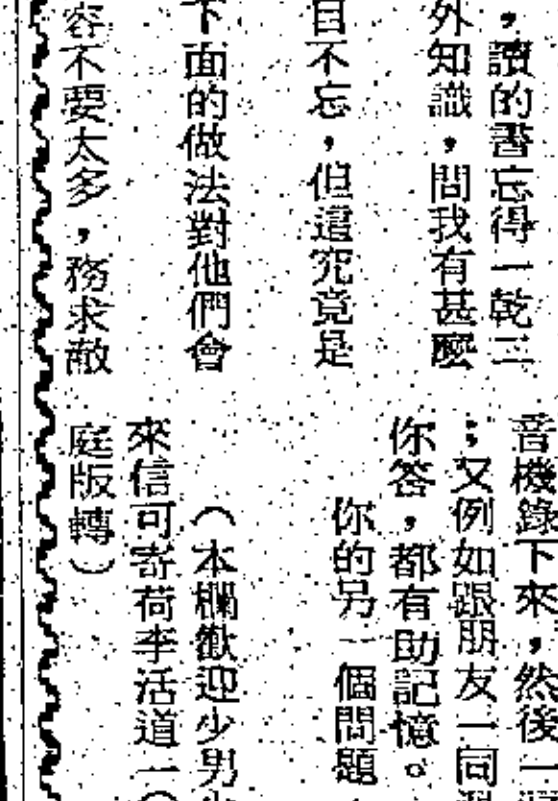 ，讀的書忘得一乾二
外知識，問我有甚麼
目不忘，但這究竟是
下面的做法對他們會
容不要太多，務求敵
音機錄下來，然後一
；又例如跟朋友一同
你答，都有助記憶。
你的另一個問題
（本欄歡迎少男
來信可寄荷李活道一
庭版轉）